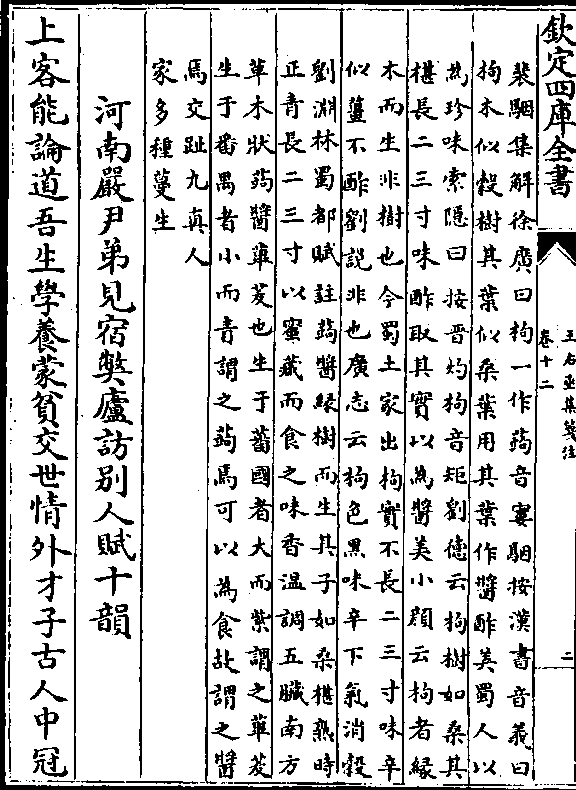 欽定四庫全書
王右丞集箋注
卷十二
二
裴駰集解徐廣曰枸一作蒟音寠駰按漢書音義曰
枸木似榖樹其葉似桑葉用其葉作醬酢美蜀人以
為珍味索隱曰按晉灼枸音矩劉徳云枸樹如桑其
椹長二三寸味酢取其實以為醬美小顔云枸者縁
木而生非樹也今蜀土家出枸實不長二三寸味辛
似薑不酢劉説非也廣志云枸色黑味辛下氣消榖
劉淵林蜀都賦註蒟醬縁樹而生其子如桑椹熟時
正青長二三寸以蜜藏而食之味香温調五臟南方
草木狀蒟醬蓽茇也生于蕃國者大而紫謂之蓽茇
生于番禺者小而青謂之蒟焉可以為食故謂之醬
焉交趾九真人
家多種蔓生
河南嚴尹弟見宿弊廬訪别人賦十韻
上客能論道吾生學養蒙貧交世情外才子古人中冠